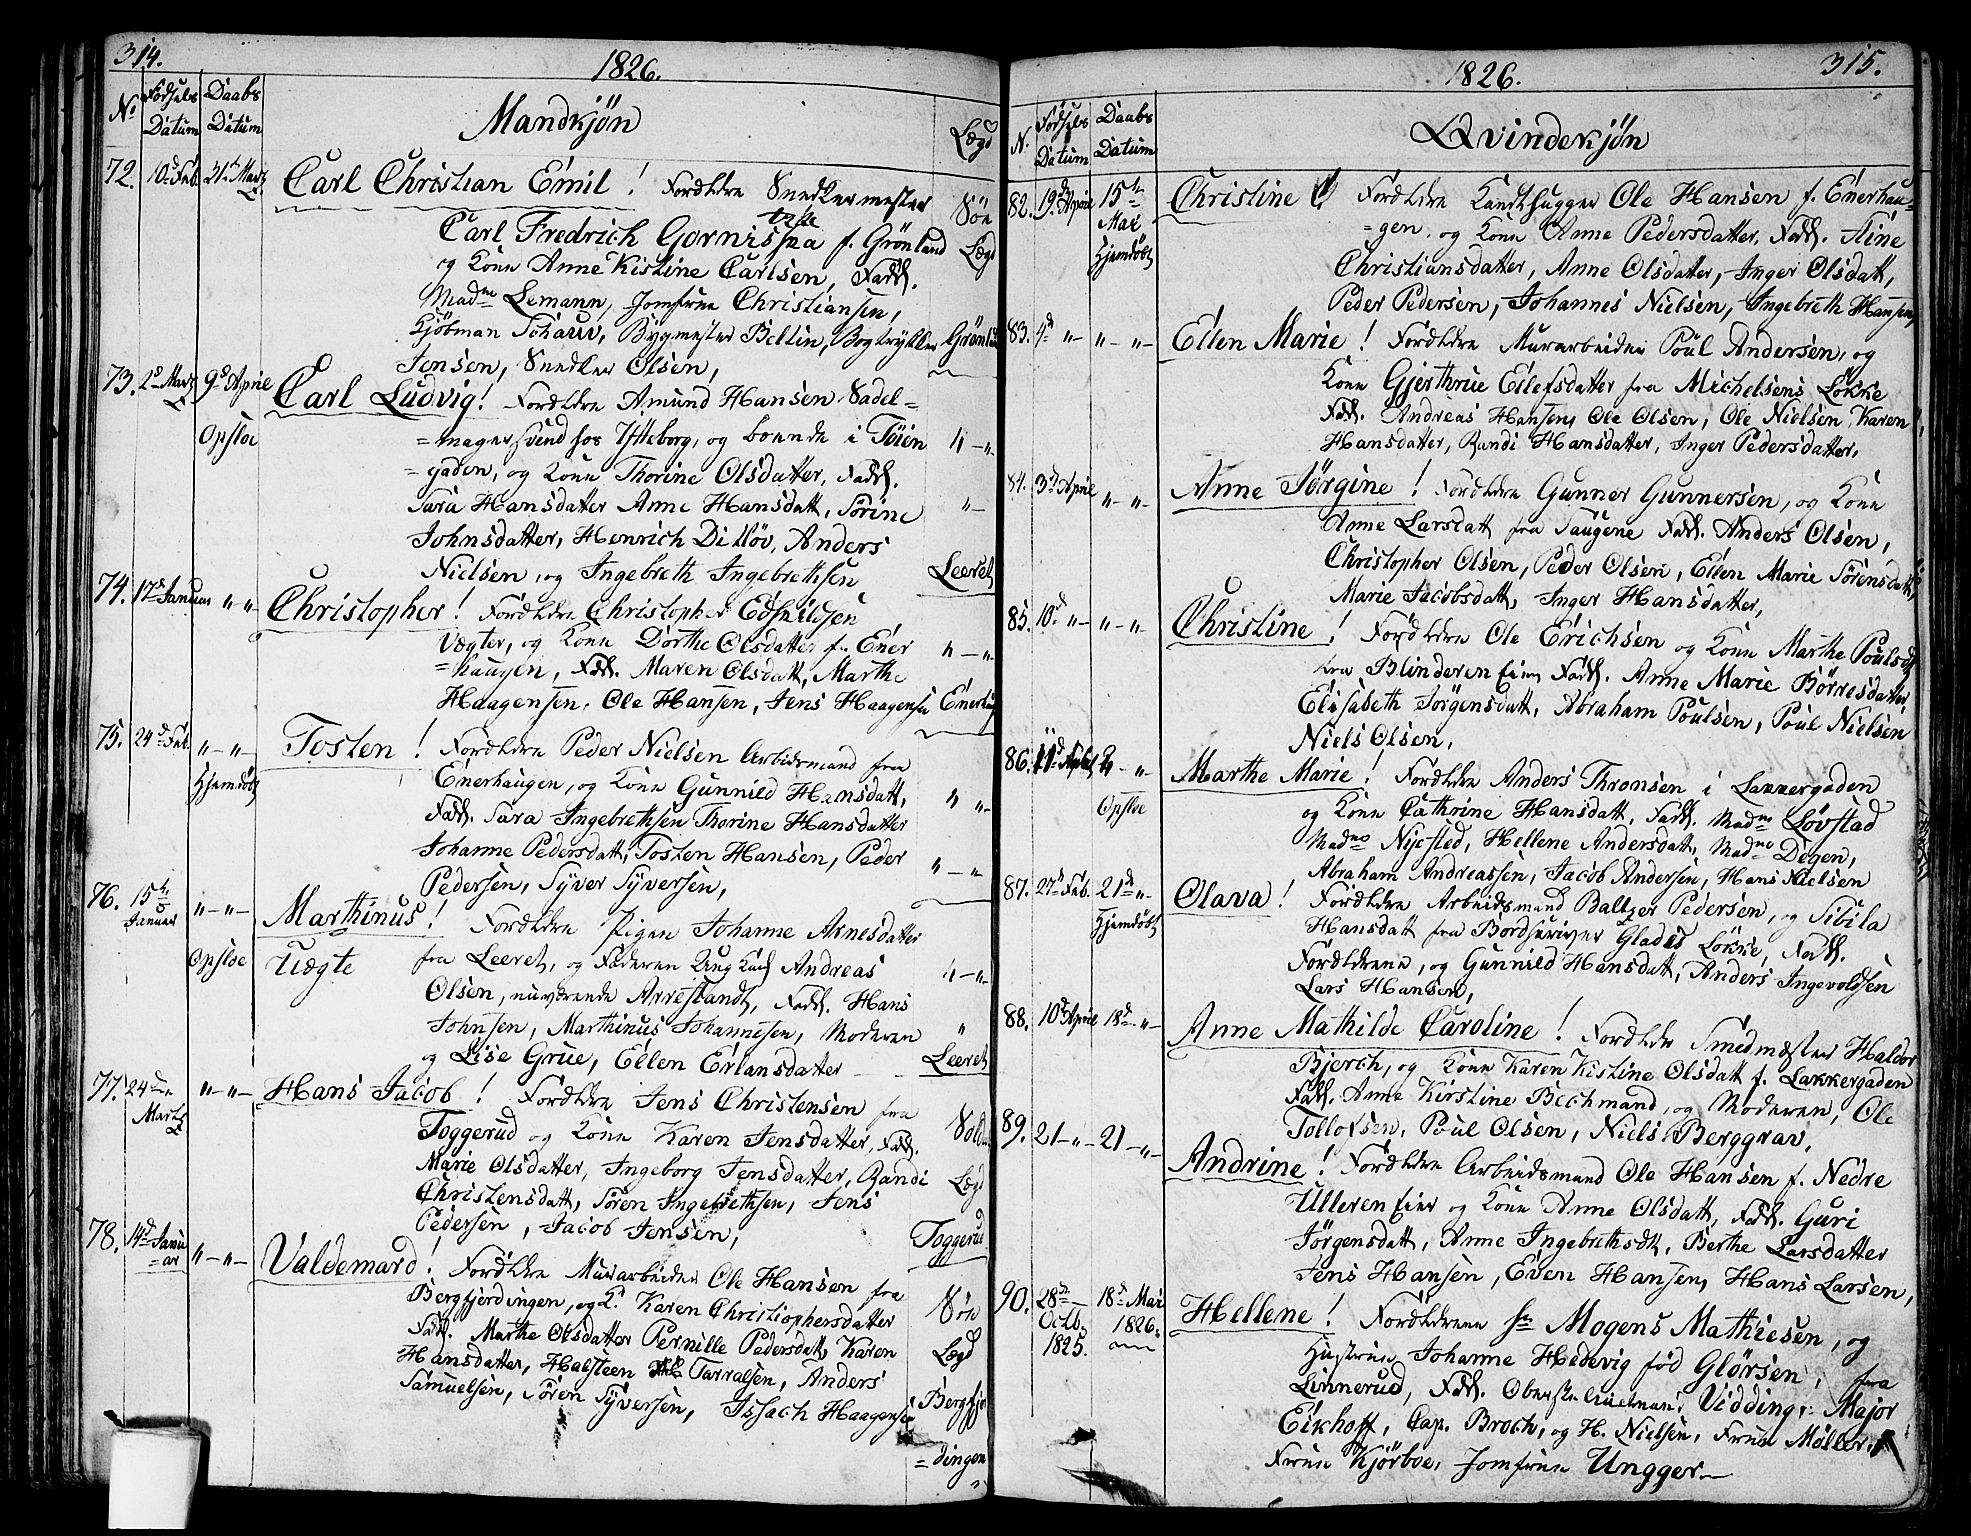 314.
1826.
No
Fødsels Datum
Daabs Datum
Mandkjøn
Lægd
72. 10de Feb. 21de Marz Carl Christian Emil! Forældre Snedkermester
Carl Fredrich Gornitzka f. Grönland Söe Lægd
og Kone Anne Kistine Carlsen, Fadd.
Madme Lemann, Jomfrue Christiansen,
Kjöbman Schauv, Bygmester Bellin, Bogtrykker Grönland
Jensen, Snedker Olsen,
73. 2d Marz 9d Aprie Carl Ludvig! Forældre Amund Hansen Sadel=
Opsloe =magersvend hos Ytteborg, og boende i Töien " - "
=gaden, og Kone Thorine Olsdatter, Fadd.
Sara Hansdatter Anne Hansdatt, Sörine "-
Johnsdatter, Henrich Ditlöv, Anders
Nielsen, og Ingebreth Ingebrethsen Leeret
74. 17d Januar " " Christopher! Forældre Christopher Edskildsen
Vægter, og Kone Dorthe Olsdatter f. Ener " - "
=haugen, Fadd. Maren Olsdatt, Marthe
Haagensen, Ole Hansen, Jens Haagensen Enerhau
75. 24d Feb. " - " - Tosten! Forældre Peder Nielsen Arbeidsmand fra
Hjemdöbt Enerhaugen, og Kone Gunnild Hansdatt, " "-
Fadd. Sara Ingebrethsen Thorine Hansdatter
Johanne Pedersdatt, Tosten Hansen, Peder " - "
Pedersen, Syver Syversen,
76. 15de Januar " - " - Marthinus! Forældre Pigen Johanne Arnesdatter
Opsloe Uægte fra Leeret, og Faderen Ung Karl Andreas " - "
Olsen, nuværende Arrestandt, Fadd. Hans
Johnsen, Marthinus Johannesen, Moderen "
og Lise Grue, Ellen Erlansdatter Leeret
77. 24de Marts " - " - Hans Jacob! Forældre Jens Christensen fra
Toggerud og Kone Karen Jensdatter, Fadd. Sold
Marie Olsdatter, Ingeborg Jensdatter, Randi Lægd
Christensdatt, Sören Ingebrethsen, Jens
Pedersen, Jacob Jensen, Toggerud
78. 14d Janu=ar " - " - Valdemard! Forældre Murarbeider Ole Hansen fra
Bergfjerdingen, og K. Karen Christophersdatter Söe
Fadd. Marthe Olsdatter Pernille Pedersdatt, Karen Lægd
Hansdatter, Halsteen Tarralsen, Anders
Samuelsen, Sören Syversen, Issach Haagensen Bergfjer
=dingen
315.
1826.
N.
Fødsels Datum
Daabs Datum
Qvindekjøn
82. 19d Aprie 15de Mai Christine Forældre Kandthugger Ole Hansen f. Enerhau=
Hjemdöbt =gen, og Kone Anne Pedersdatter, Fadd. Stine
Christiansdatter, Anne Olsdatter, Inger Olsdatt,
Peder Pedersen, Johannes Nielsen, Ingebreth Hansen,
83. 4d " - " - " - Ellen Marie! Forældre Murarbeider Poul Andersen, og
Kone Gjerthrue Eilefsdatter fra Michelsens Løkke
Fadd. Andreas Hansen, Ole Olsen, Ole Nielsen, Karen
Hansdatter, Randi Hansdatter, Inger Pedersdatter,
84. 3d Aprie " - " - Anne Jörgine! Forældre Gunner Gunnersen, og Kone
Anne Larsdatt fra Saugene Fadd. Anders Olsen,
Christopher Olsen, Peder Olsen, Ellen Marie Sörensdatt,
Marie Jacobsdatt, Inger Hansdatter,
85. 10d " - " - " Christine! Forældre Ole Erichsen og Kone Marthe Poulsdt
fra Blinderen Eier, Fadd. Anne Marie Börresdatter,
Elisabeth Jörgensdatt, Abraham Poulsen, Poul Nielsen
Niels Olsen,
86. 11d - " Marthe Marie! Forældre Anders Thronsen i Lakkergaden
Opsloe og Kone Cathrine Hansdatt, Fadd. Madme Lövstad
Madme Nysted, Hellene Andersdatt, Madme Degen,
Abraham Andreassen, Jacob Andersen, Hans Nielsen
87. 27d Feb. 21d " - Olava! Forældre Arbeidsmand Baltzer Pedersen, og Sibila
Hjemdöbt Hansdatt fra Bordskriver Glades Lökke, Fadd.
Forældrene, og Gunnild Hansdatt, Anders Ingevoldsen
Lars Hansen,
88. 10d Aprie 18d " - Anne Mathilde Caroline! Forældre Smedmester Haldor
Bjerch, og Kone Karen Kistine Olsdatt f. Lakkergaden
Fadd. Anne Kirstine Bechmand, og Moderen, Ole
Tollofsen, Poul Olsen, Niels Berggrav,
89. 21 - " - 21 - " - Andrine! Forældre Arbeidsmand Ole Hansen f. Nedre
Ulleren Eier og Kone Anne Olsdatt, Fadd. Guri
Jörgensdatt, Anne Ingebrethsdt, Berthe Larsdatter
Jens Hansen, Even Hansen, Hans Larsen,
90. 28de Octb. 1825. 18d Mai 1826. Hellene! Forældrene Hr Mogens Mathiesen, og
Hustrue Johanne Hedevig fød Glørsen, fra
Linnerud, Fadd. Vidding, Major
Eikhoff, Cap. Broch, og H. Nielsen, Frue Møller,
Frue Kjörboe, Jomfrue Ungger